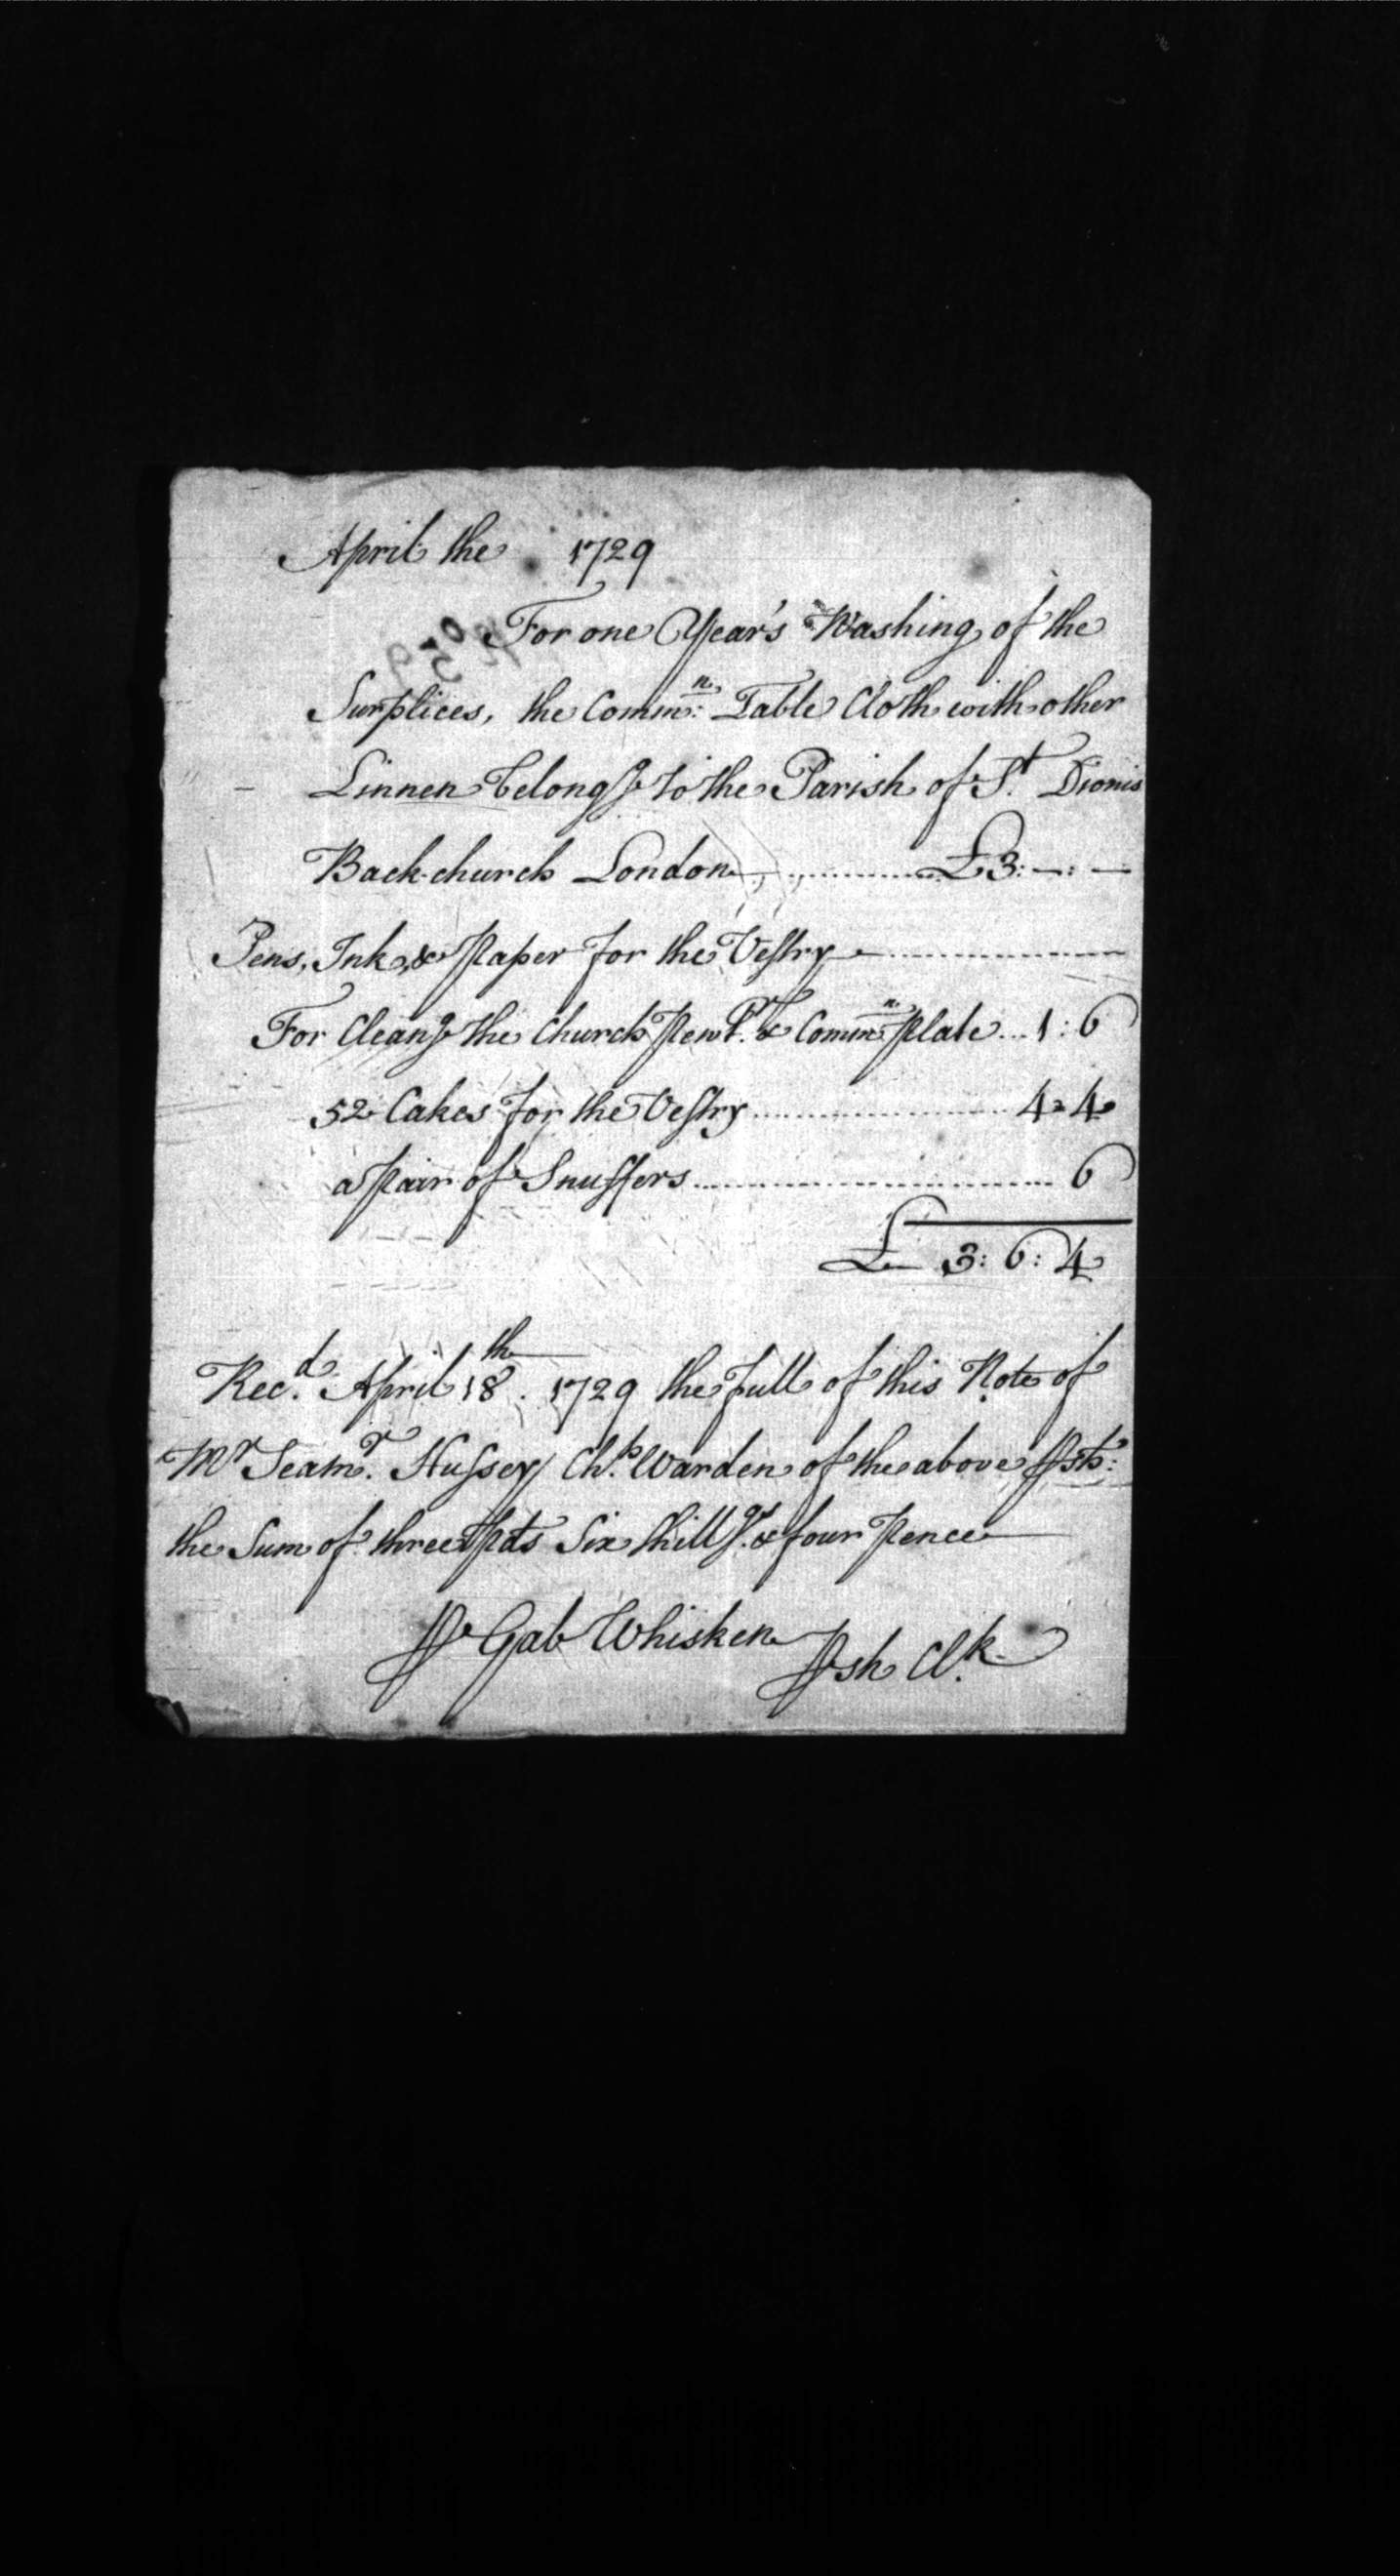 April the 1729
For one Year's Washing of the
Surplices, the Commn: Table Cloth with other
Linnen belongg to the Parish of St. Dionis
Back-church London £3: —: —
Pens, Ink, & Paper for the Vestry
For Cleang the Church Pewtr. & Commn: Plate 1: 6
52 Cakes for the Vestry 4 = 4
a Pair of Snuffers 6
£ 3: 6: 4
Recd. April 18th. 1729 the full of this Note of
Mr Seamr. Hussey Chh. Warden of the above Psh:
the Sum of three Pds Six Shillgs. & four Pence
P Gab Whisken Psh Clk.